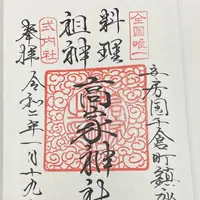 全国唯一
安房国千倉町鎮座
料理
祖神
高家神社
式内社
奉拝
令和二年一月十九